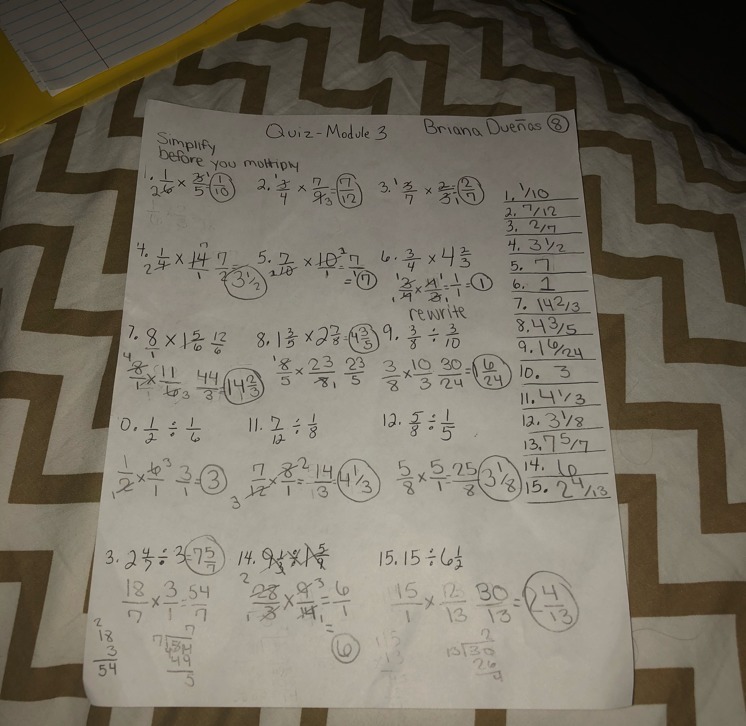 Quiz-Module 3 Briana Dueñas 8
Simplify
before you multiply
1. 1/6 2 × 3 1/5 = 1/10 2. 1 3/4 × 7/9 3 = 7/12 3. 1 3/7 × 2/3 1 = 2/7
4. 1/4 2 × 14 7/1 7/2 = 3 1/2 5. 7/10 1 × 10 1/1 = 7/1 = 7 6. 3/4 × 4 2/3
= 1 1/1 = 1
rewrite
7. 8/1 × 1 5/6 12/6 8. 1 3/5 × 2 7/8 = 4 3/5 9. 3/8 ÷ 3/10
4 8/1 × 11/6 3 44/3 = 14 2/3 1 8/5 × 23/8 1 23/5 3/8 × 10/3 30/24 = 1 6/24
0. 1/2 ÷ 1/6 11. 7/12 ÷ 1/8 12. 5/8 ÷ 1/5
1/2 × 6 3/1 3/1 = 3 7/12 3 × 8 2/1 = 14/3 = 4 1/3 5/8 × 5/1 = 25/8 3 1/8
3. 2 4/7 ÷ 3 = 7 5/7 14. 15. 15 ÷ 6 1/2
18/7 × 3/1 = 54/7 2 28/3 1 × 9 3/14 1 = 6/1 15/1 × 2/13 30/13 = 2 4/13
= 6
2
18
3
54
7
7 54
49
5
2
13 30
26
4
1. 1/10
2. 7/12
3. 2/7
4. 3 1/2
5. 7
6. 1
7. 14 2/3
8. 4 3/5
9. 1 6/24
10. 3
11. 4 1/3
12. 3 1/8
13. 7 5/7
14. 6
15. 2 4/13